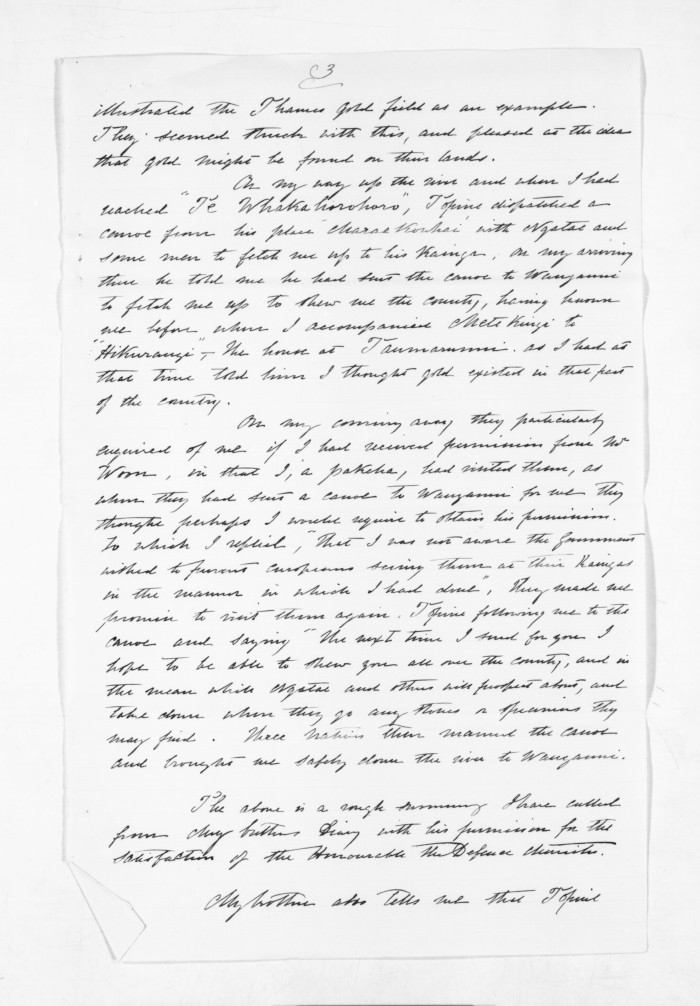 3
illustrated the Thames Gold field as an example.
They seemed struck with this, and pleased at the idea
that gold might be found on their lands.
On my way up the river and when I had
reached "Te Whakahorohoro", Topine dispatched a
canoe from his place "Maraekowhai" with Ngatae and
some men to fetch me up to his Kainga, on my arriving
there he told me he had sent the canoe to Wanganui
to fetch me up to shew me the country, having known
me before when I accompanied Mete Kingi to
"Hikurangi" – the house at Taumarunui. as I had at
that time told him I thought gold existed in that part
of the country.
On my coming away they particularly
enquired of me if I had received permission from Mr
Woon, in that I, a pakeha, had visited them, as
when they had sent a canoe to Wanganui for me they
thought perhaps I would require to obtain his permission.
To which I replied, "that I was not aware the Government
wished to prevent Europeans seeing them at their Kaingas
in the manner in which I had done", They made me
promise to visit them again. Topine following me to the
canoe and saying "the next time I send for you I
hope to be able to shew you all over the country, and in
the mean while Ngatae and others will prospect about, and
take down when they go any stones or specimens they
may find. Three natives then manned the canoe
and brought me safely down the river to Wanganui.
The above is a rough summary I have culled
from my brothers Diary with his permission for the
satisfaction of the Honourable the Defence Minister.
My brother also tells me that Topine